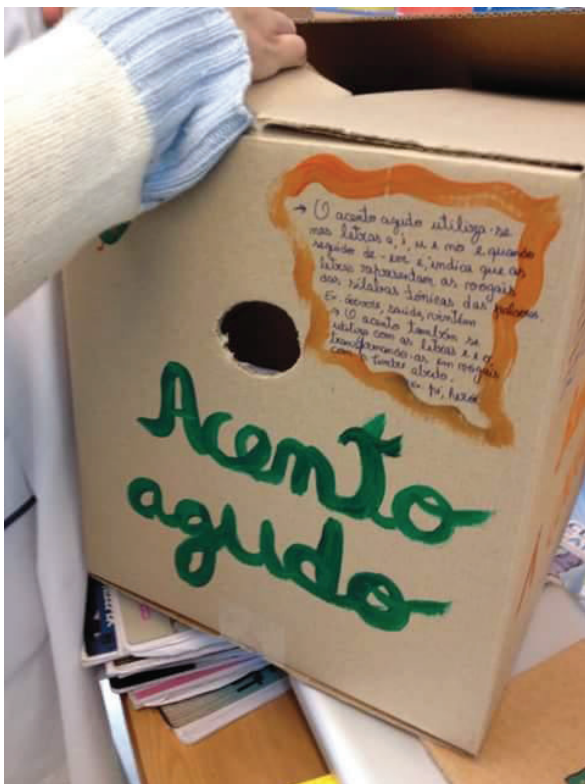 → O acento agudo utiliza-se
nas letras a, i, u e no e quando
seguido de -em e indica que as
letras representam as vogais
das sílabas tónicas das palavras.
Ex. saúde, vintém
→ O acento também se
utiliza com as letras e e o,
transformando-as em vogais
com o timbre aberto.
ex. pé, herói
Acento
agudo